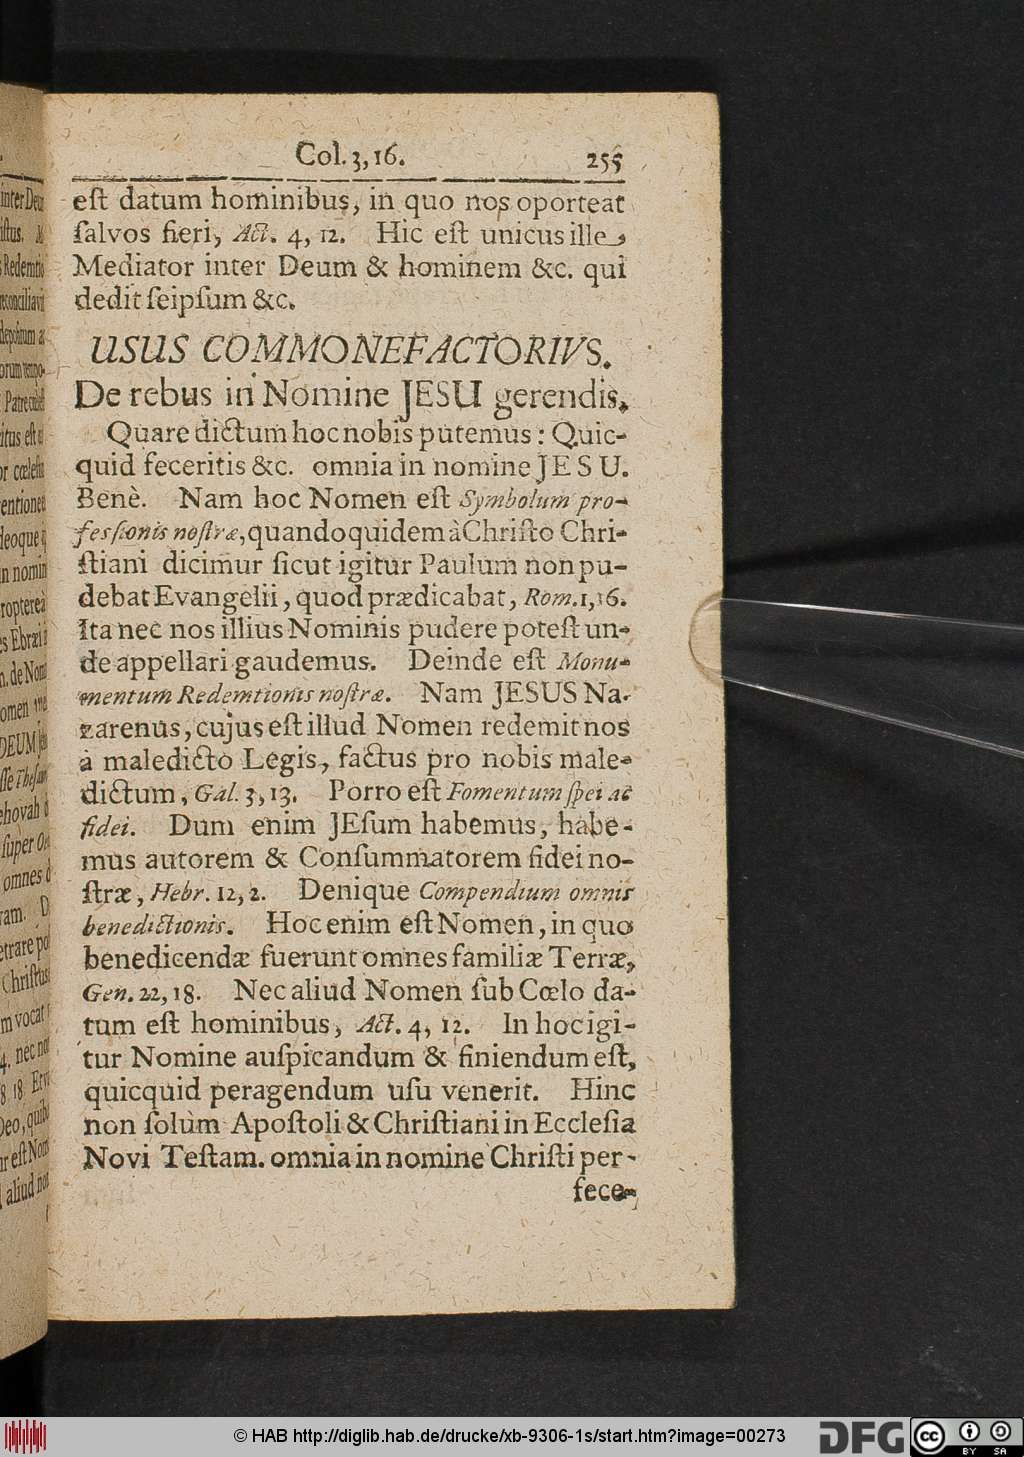 Col. 3, 16. 255
eſt datum hominibus, in quo nos oporteat
ſalvos fieri, Act. 4, 12. Hic eſt unicus ille,
Mediator inter Deum & hominem &c. qui
dedit ſeipſum &c.
USUS COMMONEFACTORIVS.
De rebus in Nomine JESU gerendis.
Quare dictum hoc nobis putemus: Quic-
quid feceritis &c. omnia in nomine JESU.
Benè. Nam hoc Nomen eſt Symbolum pro-
feſſionis noſtræ, quandoquidem à Chriſto Chri-
ſtiani dicimur ſicut igitur Paulum non pu-
debat Evangelii, quod prædicabat, Rom. 1, 16.
Ita nec nos illius Nominis pudere poteſt un-
de appellari gaudemus. Deinde eſt Monu-
mentum Redemtionis noſtræ. Nam JESUS Na-
zarenus, cujus eſt illud Nomen redemit nos
à maledicto Legis, factus pro nobis male-
dictum, Gal. 3, 13. Porro eſt Fomentum ſpei ac
fidei. Dum enim JEſum habemus, habe-
mus autorem & Conſummatorem fidei no-
ſtræ, Hebr. 12, 2. Denique Compendium omnis
benedictionis. Hoc enim eſt Nomen, in quo
benedicendæ fuerunt omnes familiæ Terræ,
Gen. 22, 18. Nec aliud Nomen ſub Cœlo da-
tum eſt hominibus, Act. 4, 12. In hoc igi-
tur Nomine auſpicandum & finiendum eſt,
quicquid peragendum uſu venerit. Hinc
non ſolùm Apoſtoli & Chriſtiani in Eccleſia
Novi Teſtam. omnia in nomine Chriſti per-
fece-
© HAB http://diglib.hab.de/drucke/xb-9306-1s/start.htm?image=00273
DFG
cc BY SA